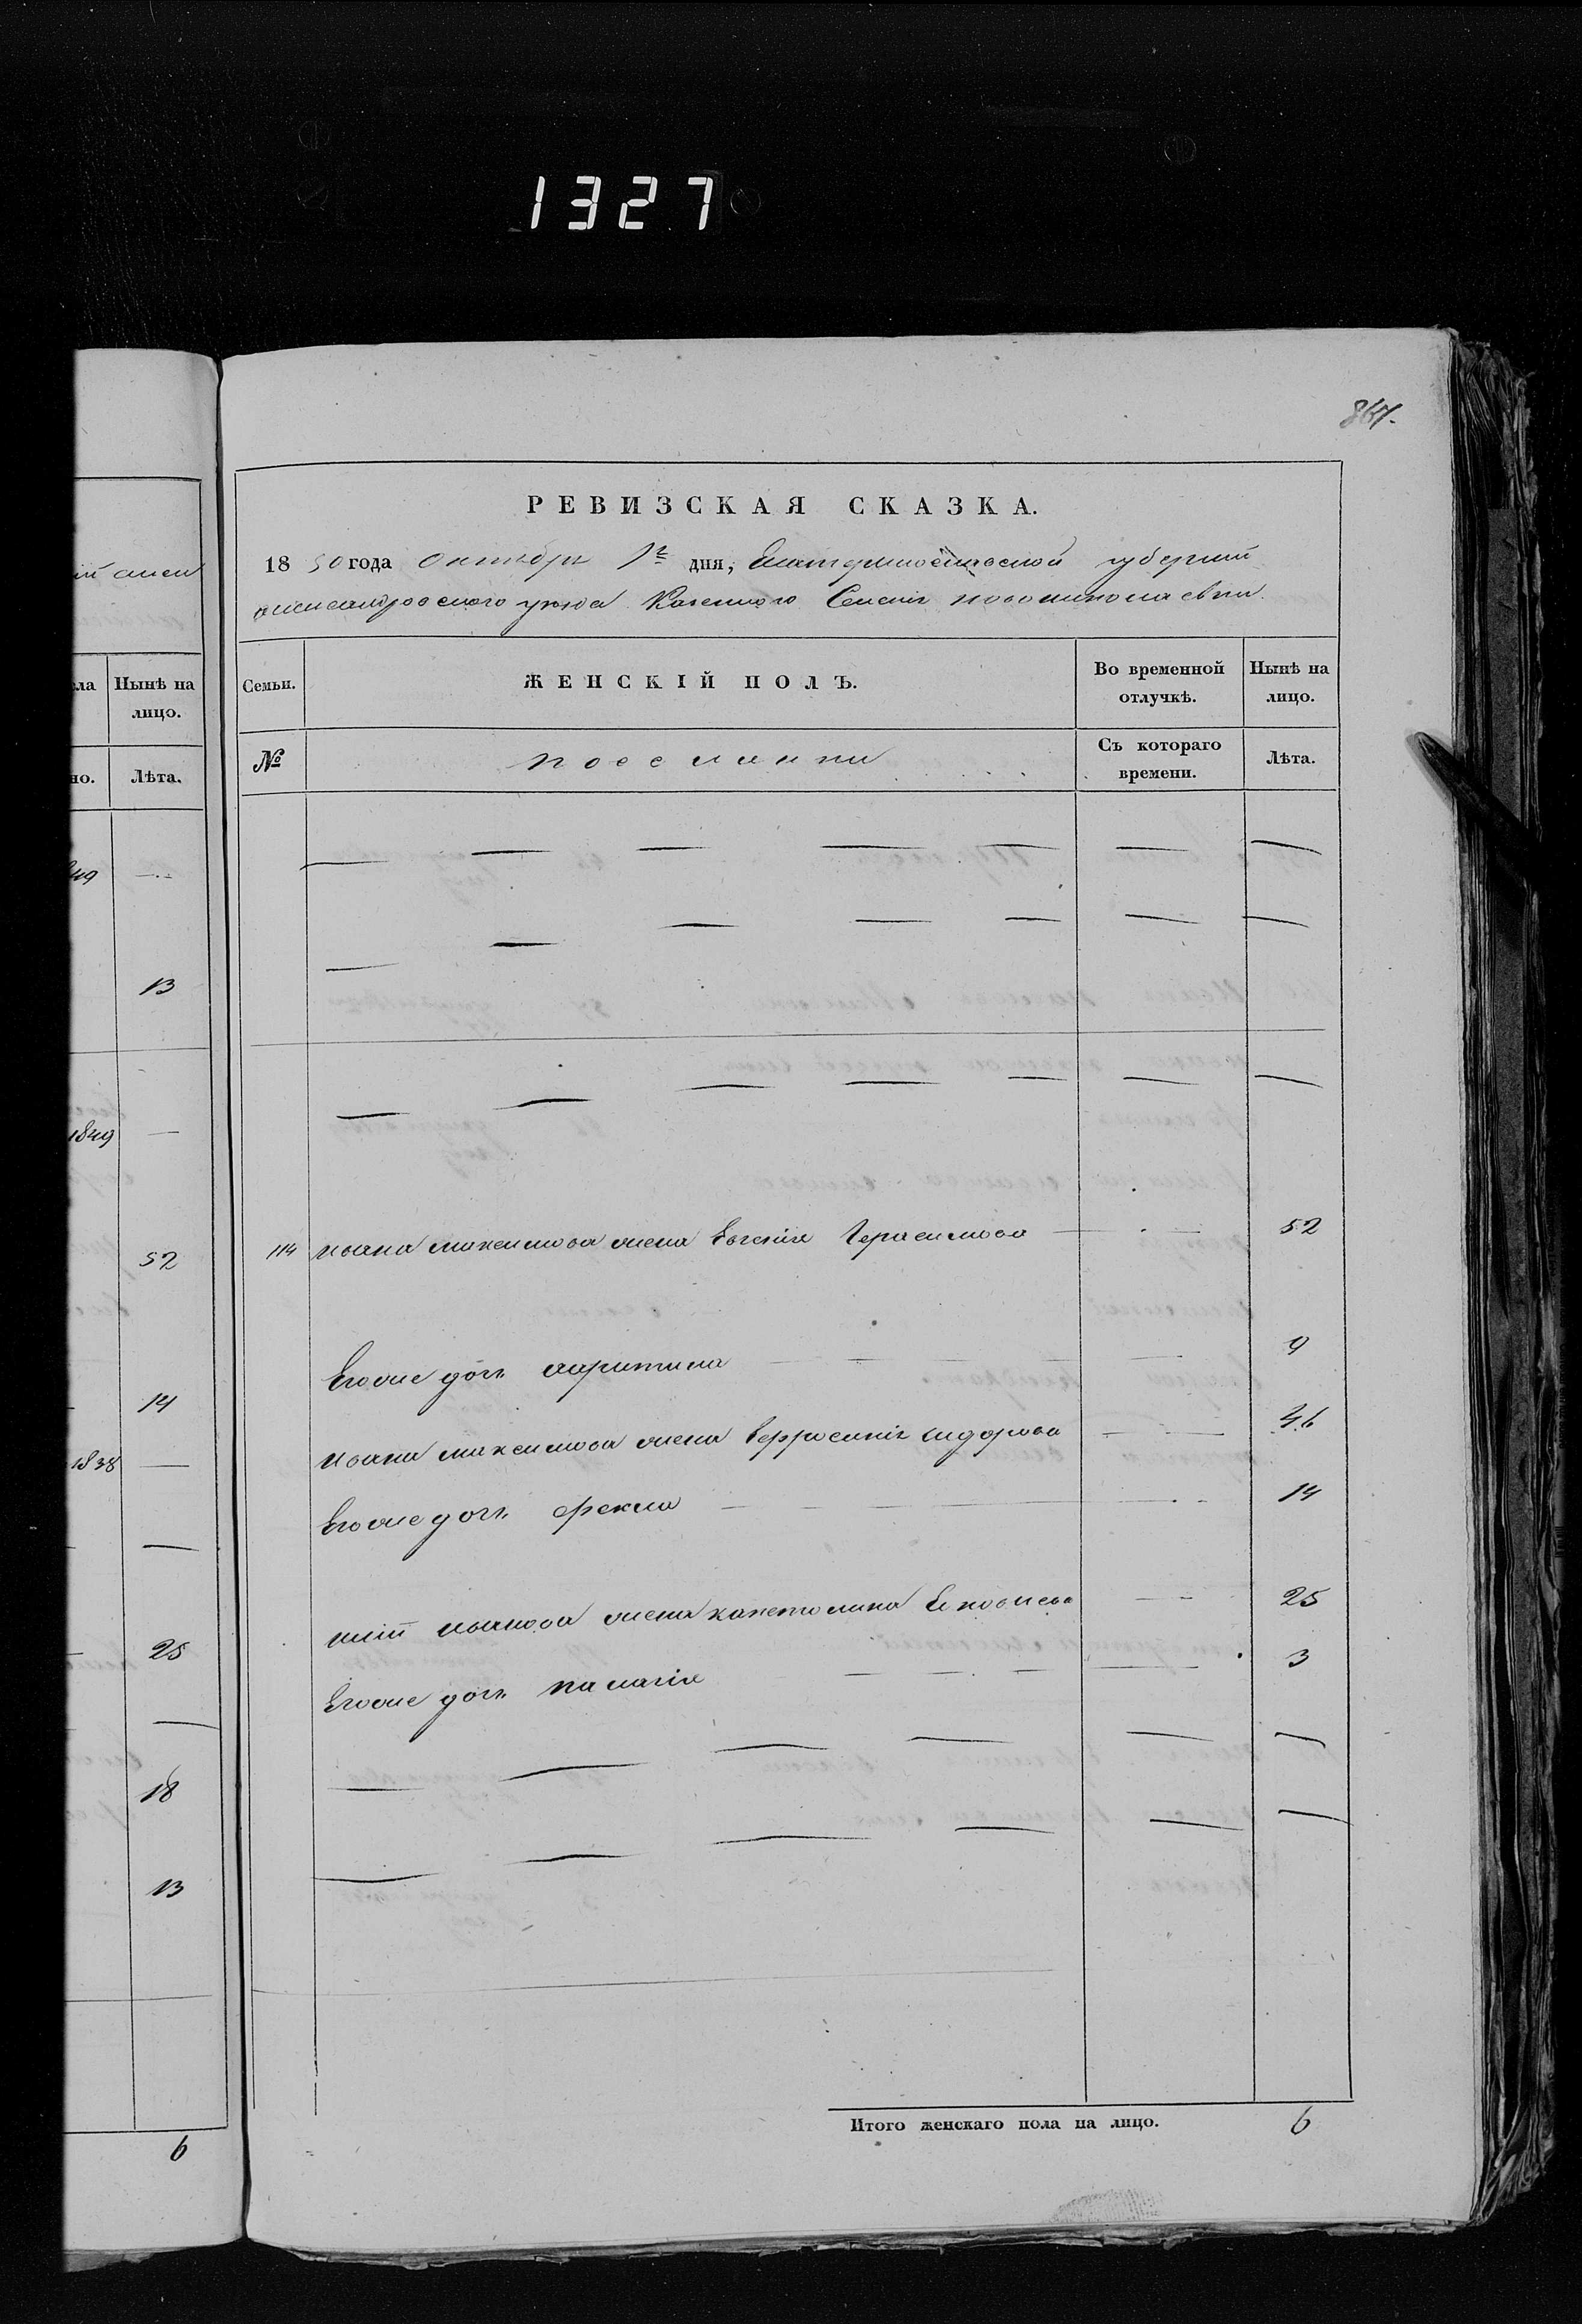 1327
867.
РЕВИЗСКАЯ СКАЗКА.
1850 года Октября 1го дня, Екатеринославской губернии
Александровского уезда Казенного Селения Новониколаевки.
ла
Нынѣ на лицо.
но.
Лѣта.
849
13
1849
52
14
1838
25
18
13
6
Семьи.
ЖЕНСКІЙ ПОЛЪ.
Во временной отлучкѣ.
Нынѣ на лицо.
№
поселянки
Съ котораго времени.
Лѣта.
114 Ивана Максимова жена Евгенія Герасимова 52
Егоже дочь 9
Ивана Максимова жена Сидорова 46
Егоже дочь Фекла 14
Иванова жена 25
Егоже дочь Палагія 3
Итого женскаго пола на лицо. 6